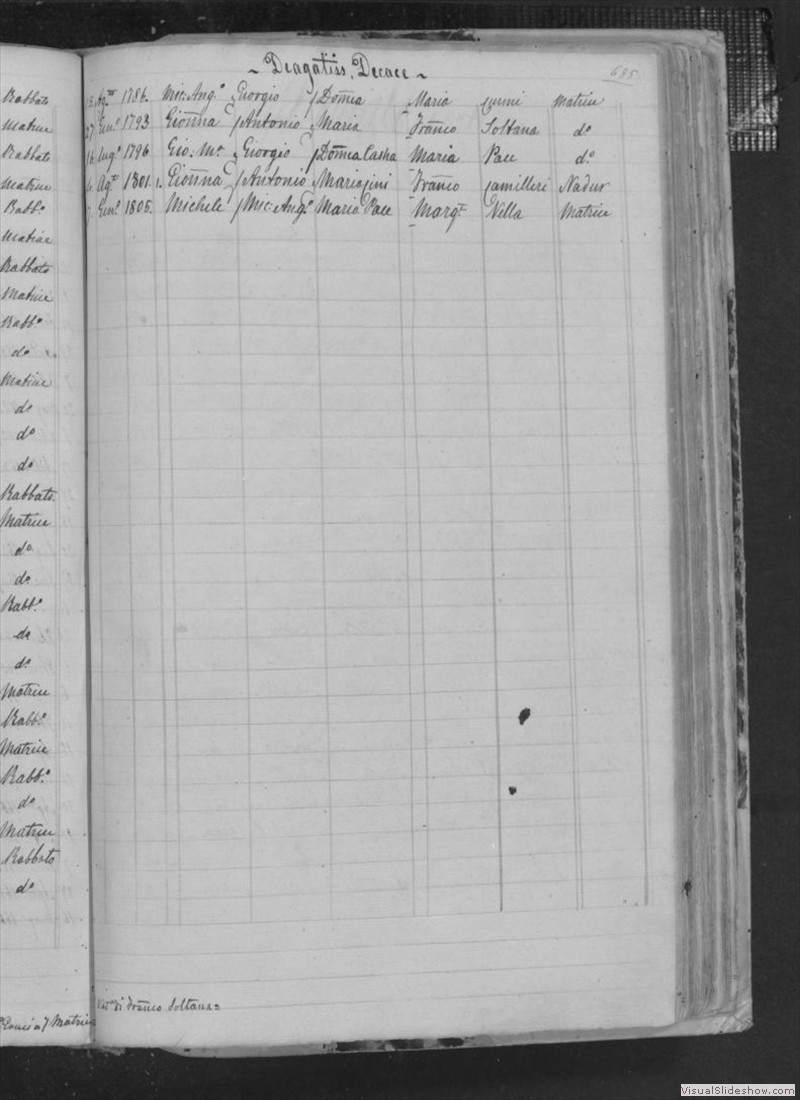 Rabbato
Matrice
Rabbato
Matrice
Rabb.o
Matrice
Rabbato
Matrice
Rabb.o
do
Matrice
do
do
do
Rabbato
Matrice
do
do
Rabb.o
do
do
Matrice
Rabb.o
Matrice
Rabb.o
do
Matrice
Rabbato
do
7 Matrice
~ Dragatiss, Decace ~
685
15 Agto 1786. Mic: Ang.o Giorgio / Domca Maria Curmi Matrice
27 Gen.o 1793 Gionna / Antonio Maria Franco Soltana do
16 Aug.o 1796 Gio. Ma Giorgio / Domca Casha Maria Pace do
6. Agto 1801 1. Gionna / Antonio Mariajini Franco Camilleri Nadur
7. Gen.o 1805. Michele / Mic: Ang.o Maria Pace Margta Vella Matrice
di Franco Soltana
VisualSlideshow.com